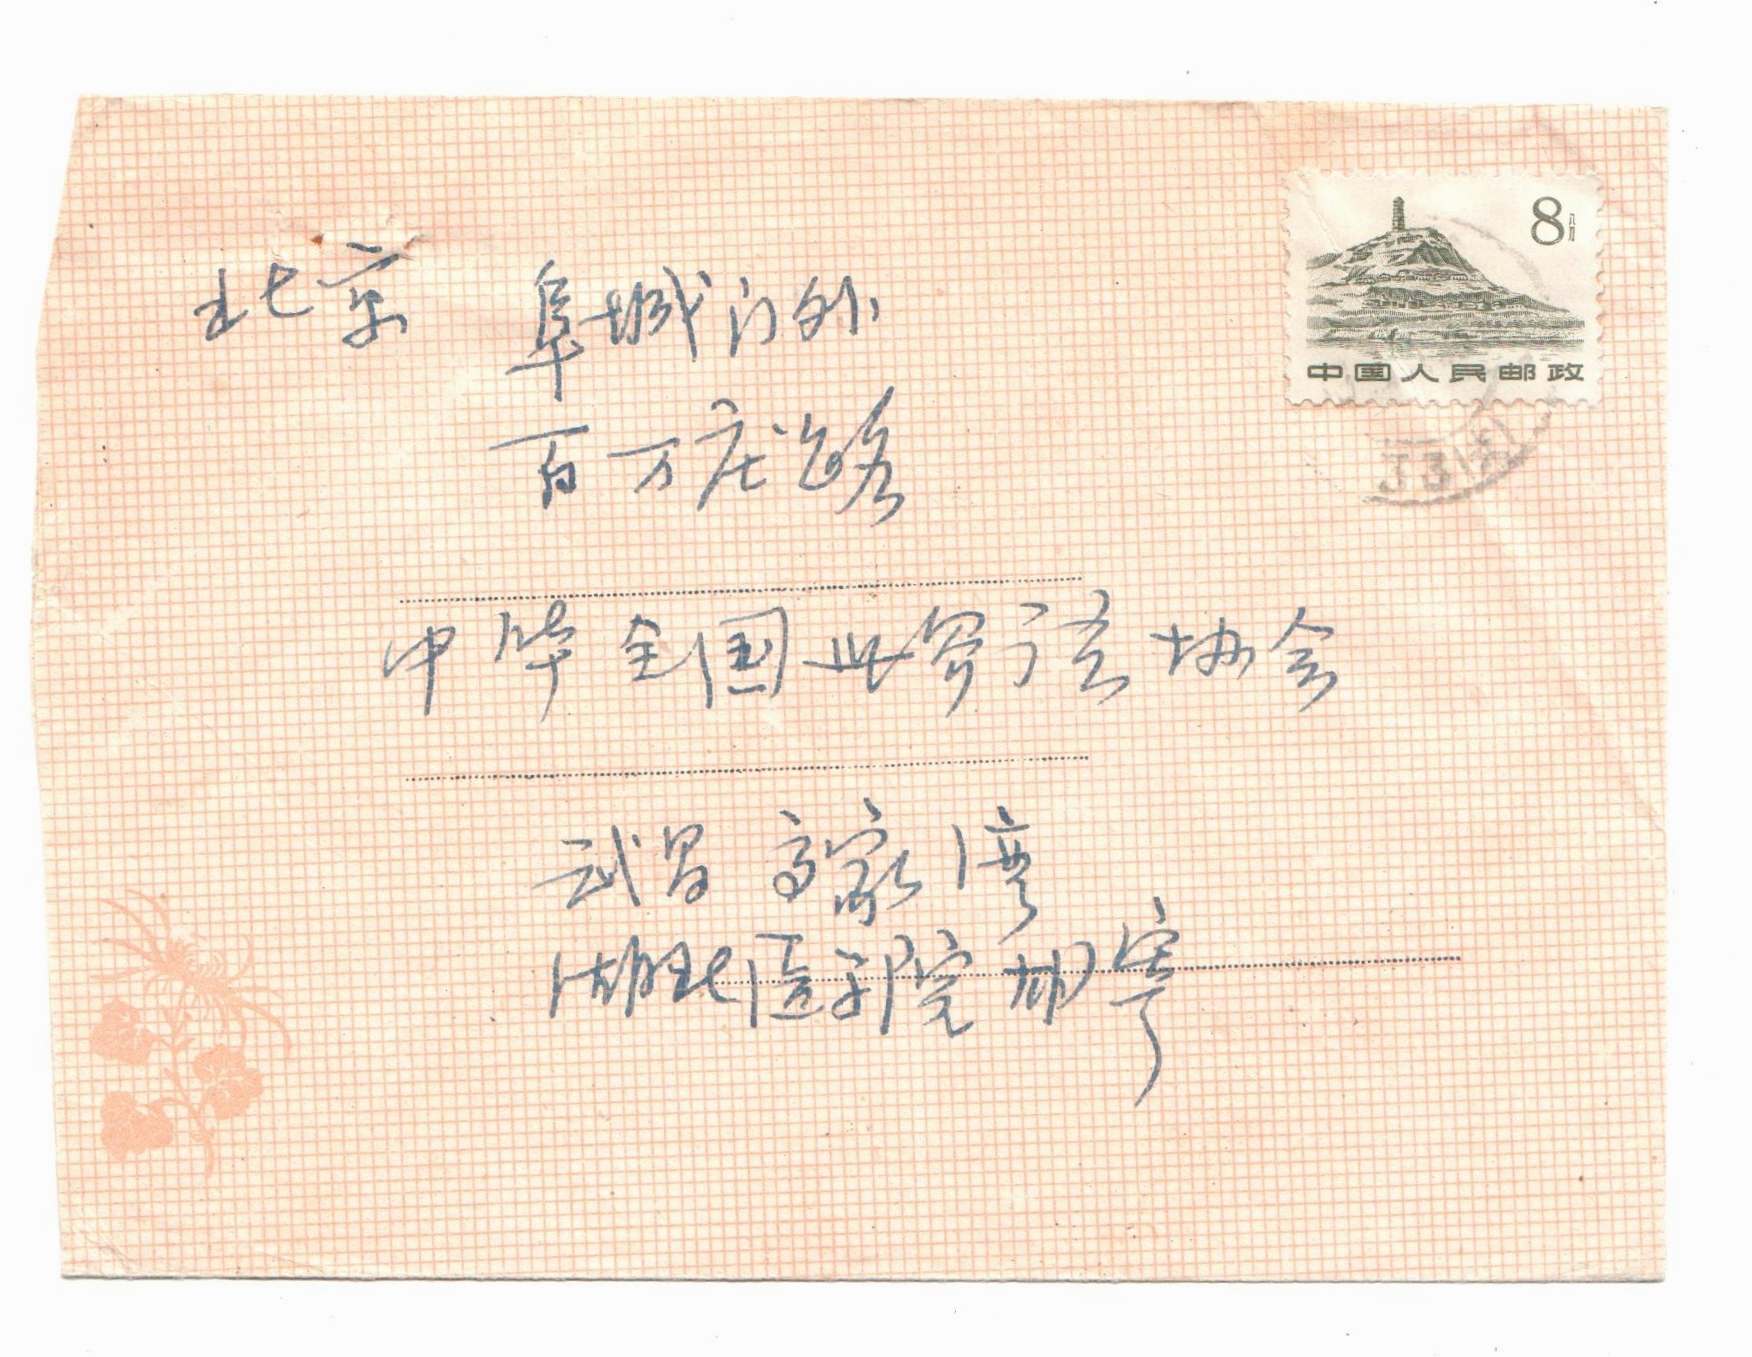 8 八分
中国人民邮政
北京 阜城门外
百万庄路
中华全国世界语协会
武昌 高家湾
湖北医学院 邝寄